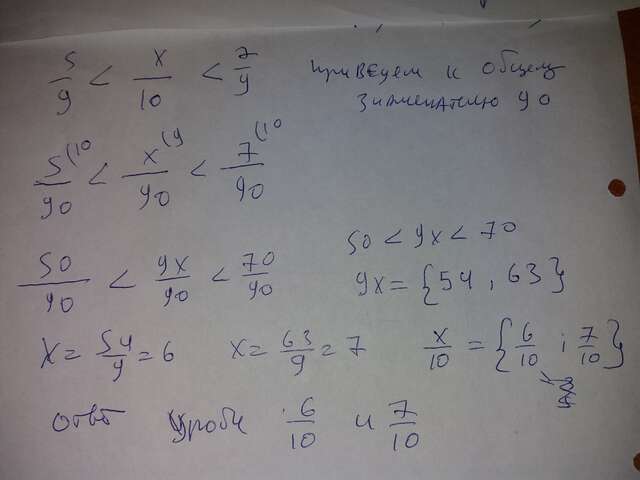 5/9 < x/10 < 7/9 приведем к общему
знаменателю 90
5(10/90 < x(9/90 < 7(10/90
50/90 < 9x/90 < 70/90 50 < 9x < 70
9x = {54; 63}
x = 54/9 = 6 x = 63/9 = 7 x/10 = {6/10; 7/10}
ответ дроби 6/10 и 7/10